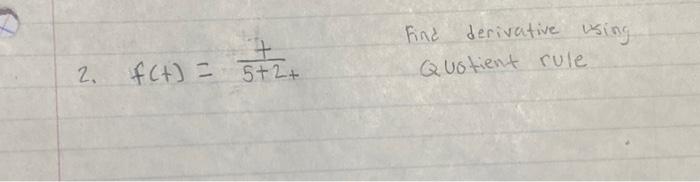 Find derivative using
Quotient rule
2. f(t) = t/5+2t